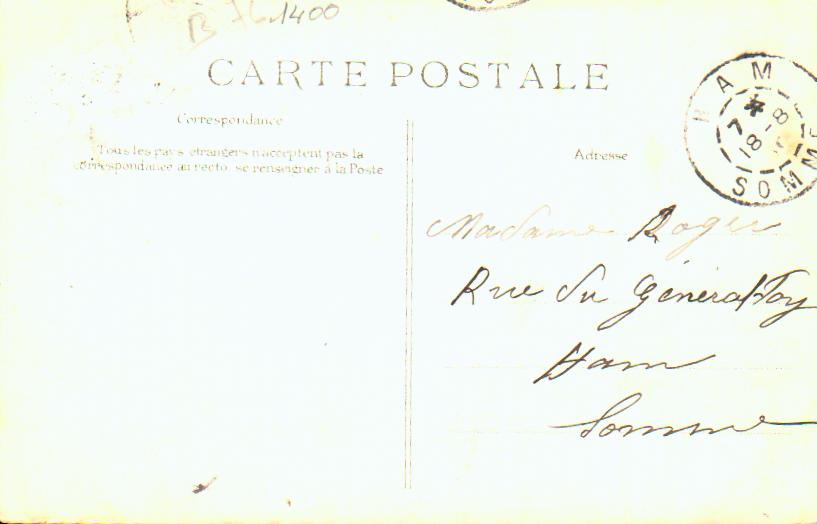 1400
CARTE POSTALE
Correspondance
Tous les pays étrangers n'acceptent pas la
correspondance au recto, se renseigner à la Poste
Adresse
HAM
SOMME
Madame Roger
Rue du Général Foy
Ham
Somme